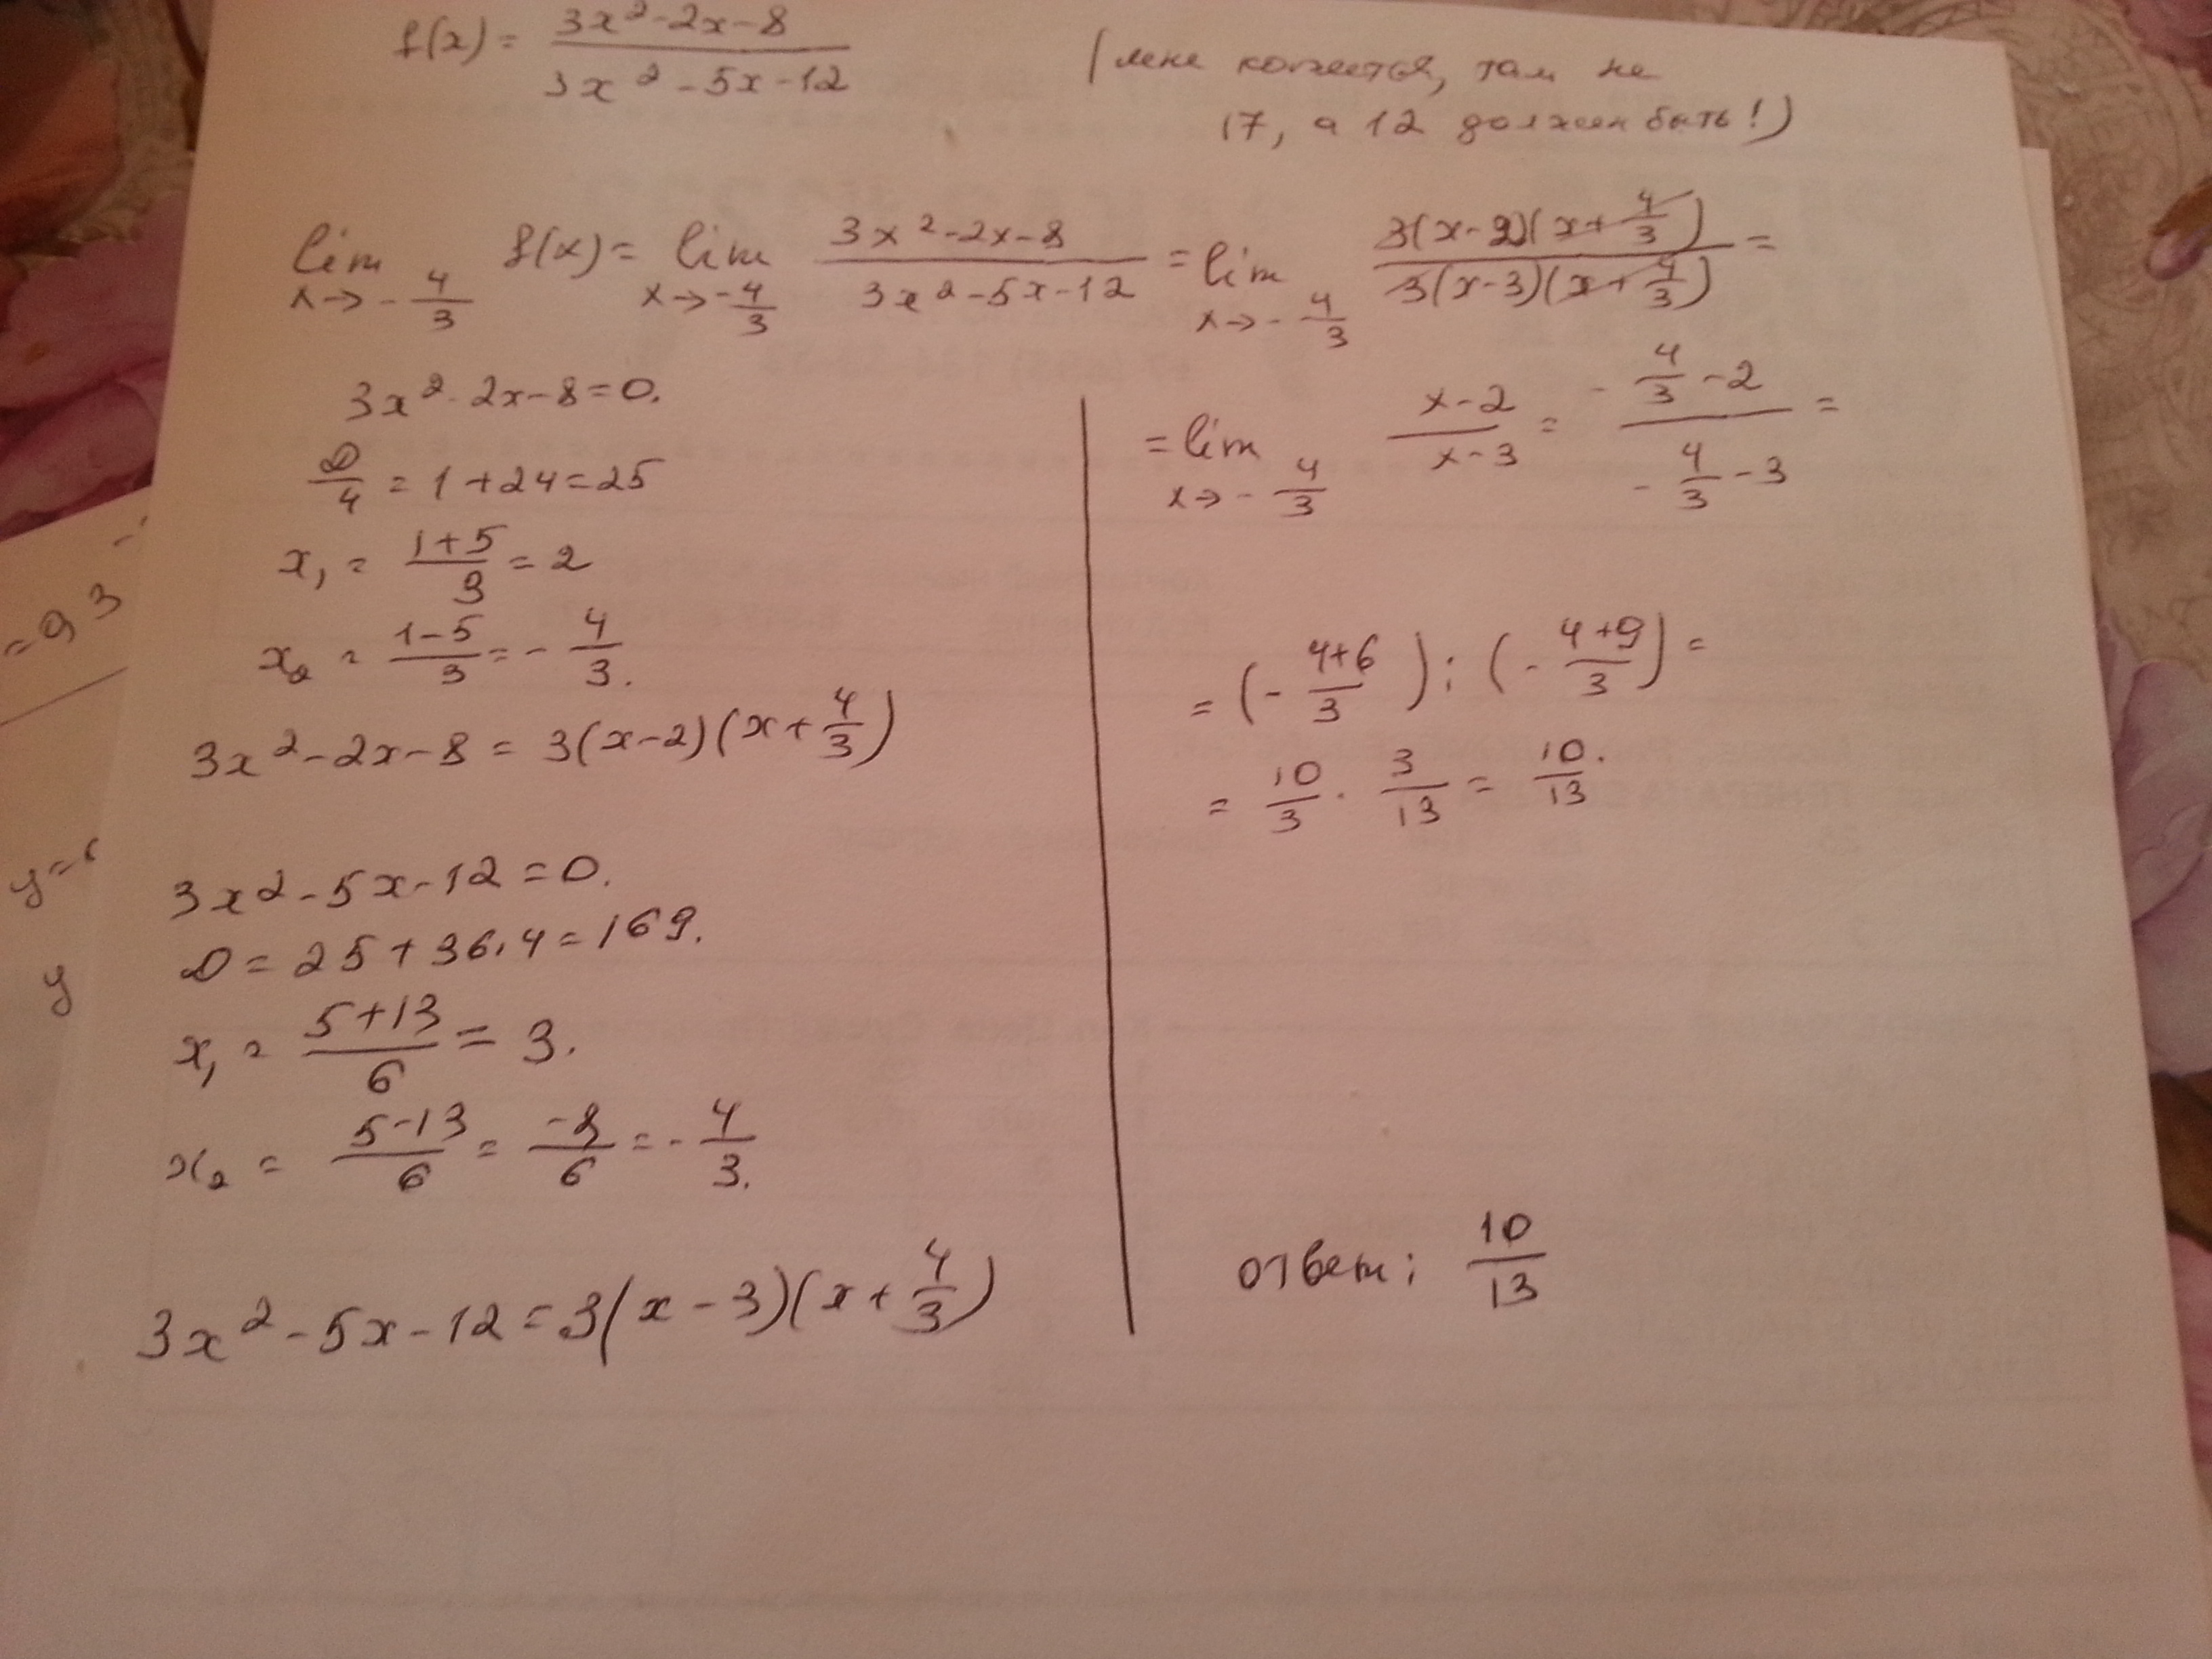 f(x) = (3x² - 2x - 8)/(3x² - 5x - 12)
(мне кажется, там не
17, а 12 должен быть!)
lim x→-4/3 f(x) = lim x→-4/3 (3x² - 2x - 8)/(3x² - 5x - 12) = lim x→-4/3 3(x-2)(x+4/3)/3(x-3)(x+4/3) =
3x² - 2x - 8 = 0.
D/4 = 1 + 24 = 25
x₁ = (1+5)/3 = 2
x₂ = (1-5)/3 = -4/3.
3x² - 2x - 8 = 3(x-2)(x+4/3)
3x² - 5x - 12 = 0.
D = 25 + 36·4 = 169.
x₁ = (5+13)/6 = 3.
x₂ = (5-13)/6 = -8/6 = -4/3.
3x² - 5x - 12 = 3(x-3)(x+4/3)
= lim x→-4/3 (x-2)/(x-3) = (-4/3 - 2)/(-4/3 - 3) =
= (-(4+6)/3) : (-(4+9)/3) =
= 10/3 · 3/13 = 10/13.
ответ: 10/13
= 9 3
y =
y